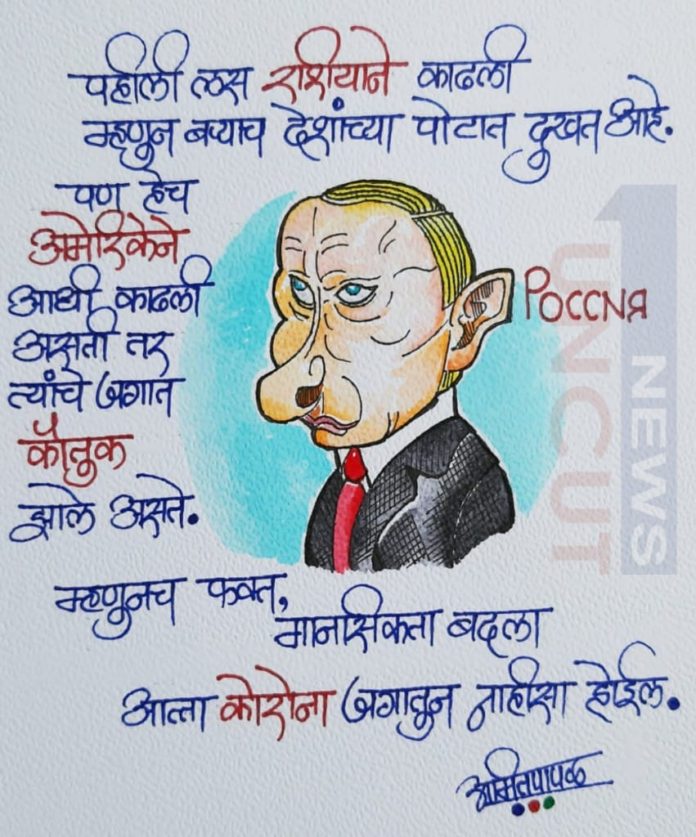 पहीली लस रशियाने काढली
म्हणुन बऱ्याच देशांच्या पोटात दुखत आहे.
पण हेच
अमेरिकेने
आधी काढली
असती तर
त्यांचे जगात
कौतुक
झाले असते.
РОССИЯ
म्हणुनच फक्त,
मानसिकता बदला
आत्ता कोरोना जगातुन नाहीसा होईल.
अमितपापळ
1
NEWS
UNCUT